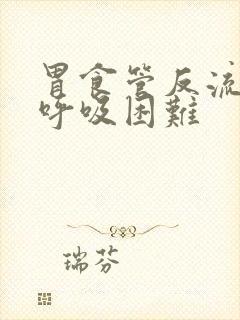 胃食管反流
呼吸困难
瑞芬